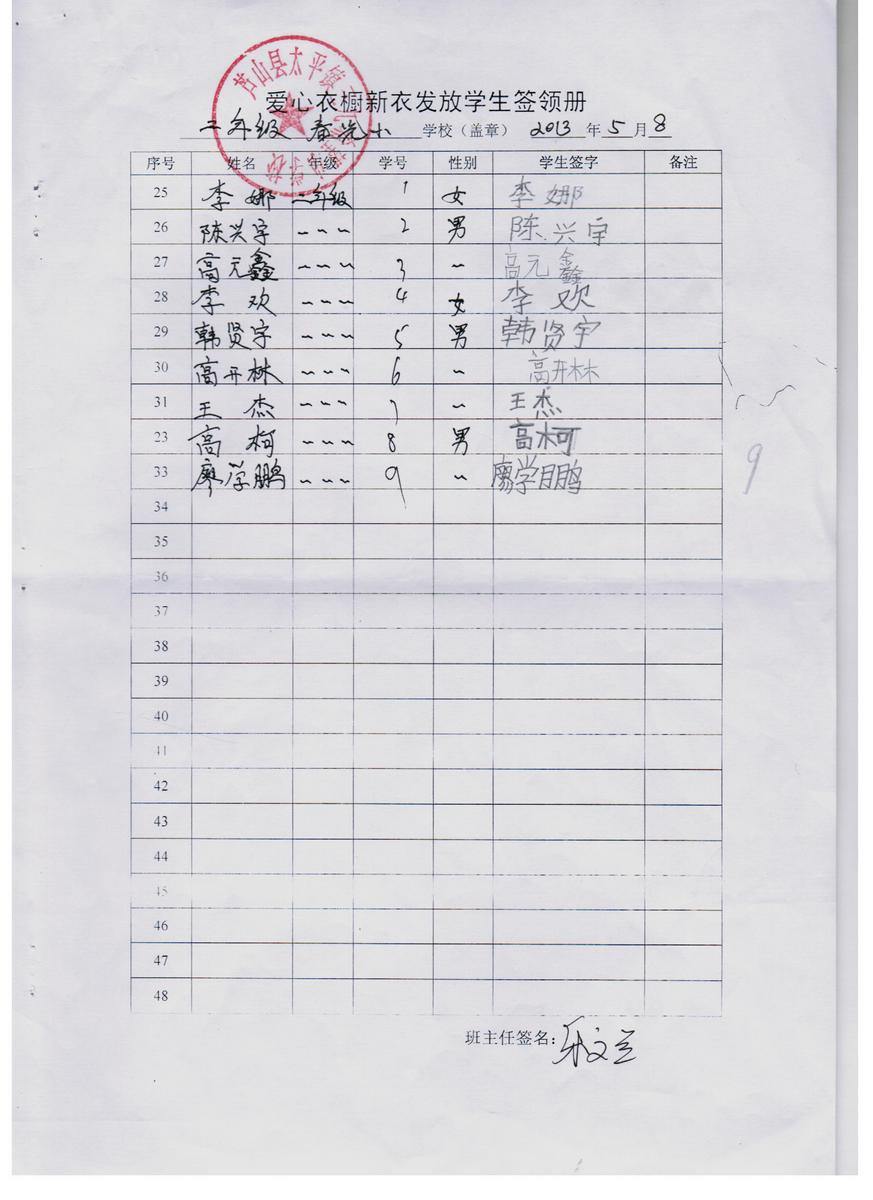 芦山县太平镇
爱心衣橱新衣发放学生签领册
二年级 春光小 学校（盖章） 2013 年 5 月 8
序号 姓名 年级 学号 性别 学生签字 备注
25 李娜 二年级 1 女 李娜
26 陈兴宇 ~ ~ ~ 2 男 陈兴宇
27 高元鑫 ~ ~ ~ 3 ~ 高元鑫
28 李欢 ~ ~ ~ 4 女 李欢
29 韩贤宇 ~ ~ ~ 5 男 韩贤宇
30 高开林 ~ ~ ~ 6 ~ 高开林
31 王杰 ~ ~ ~ 7 ~ 王杰
23 高柯 ~ ~ ~ 8 男 高柯
33 廖学鹏 ~ ~ ~ 9 ~ 廖学鹏
9
34
35
36
37
38
39
40
41
42
43
44
45
46
47
48
班主任签名：